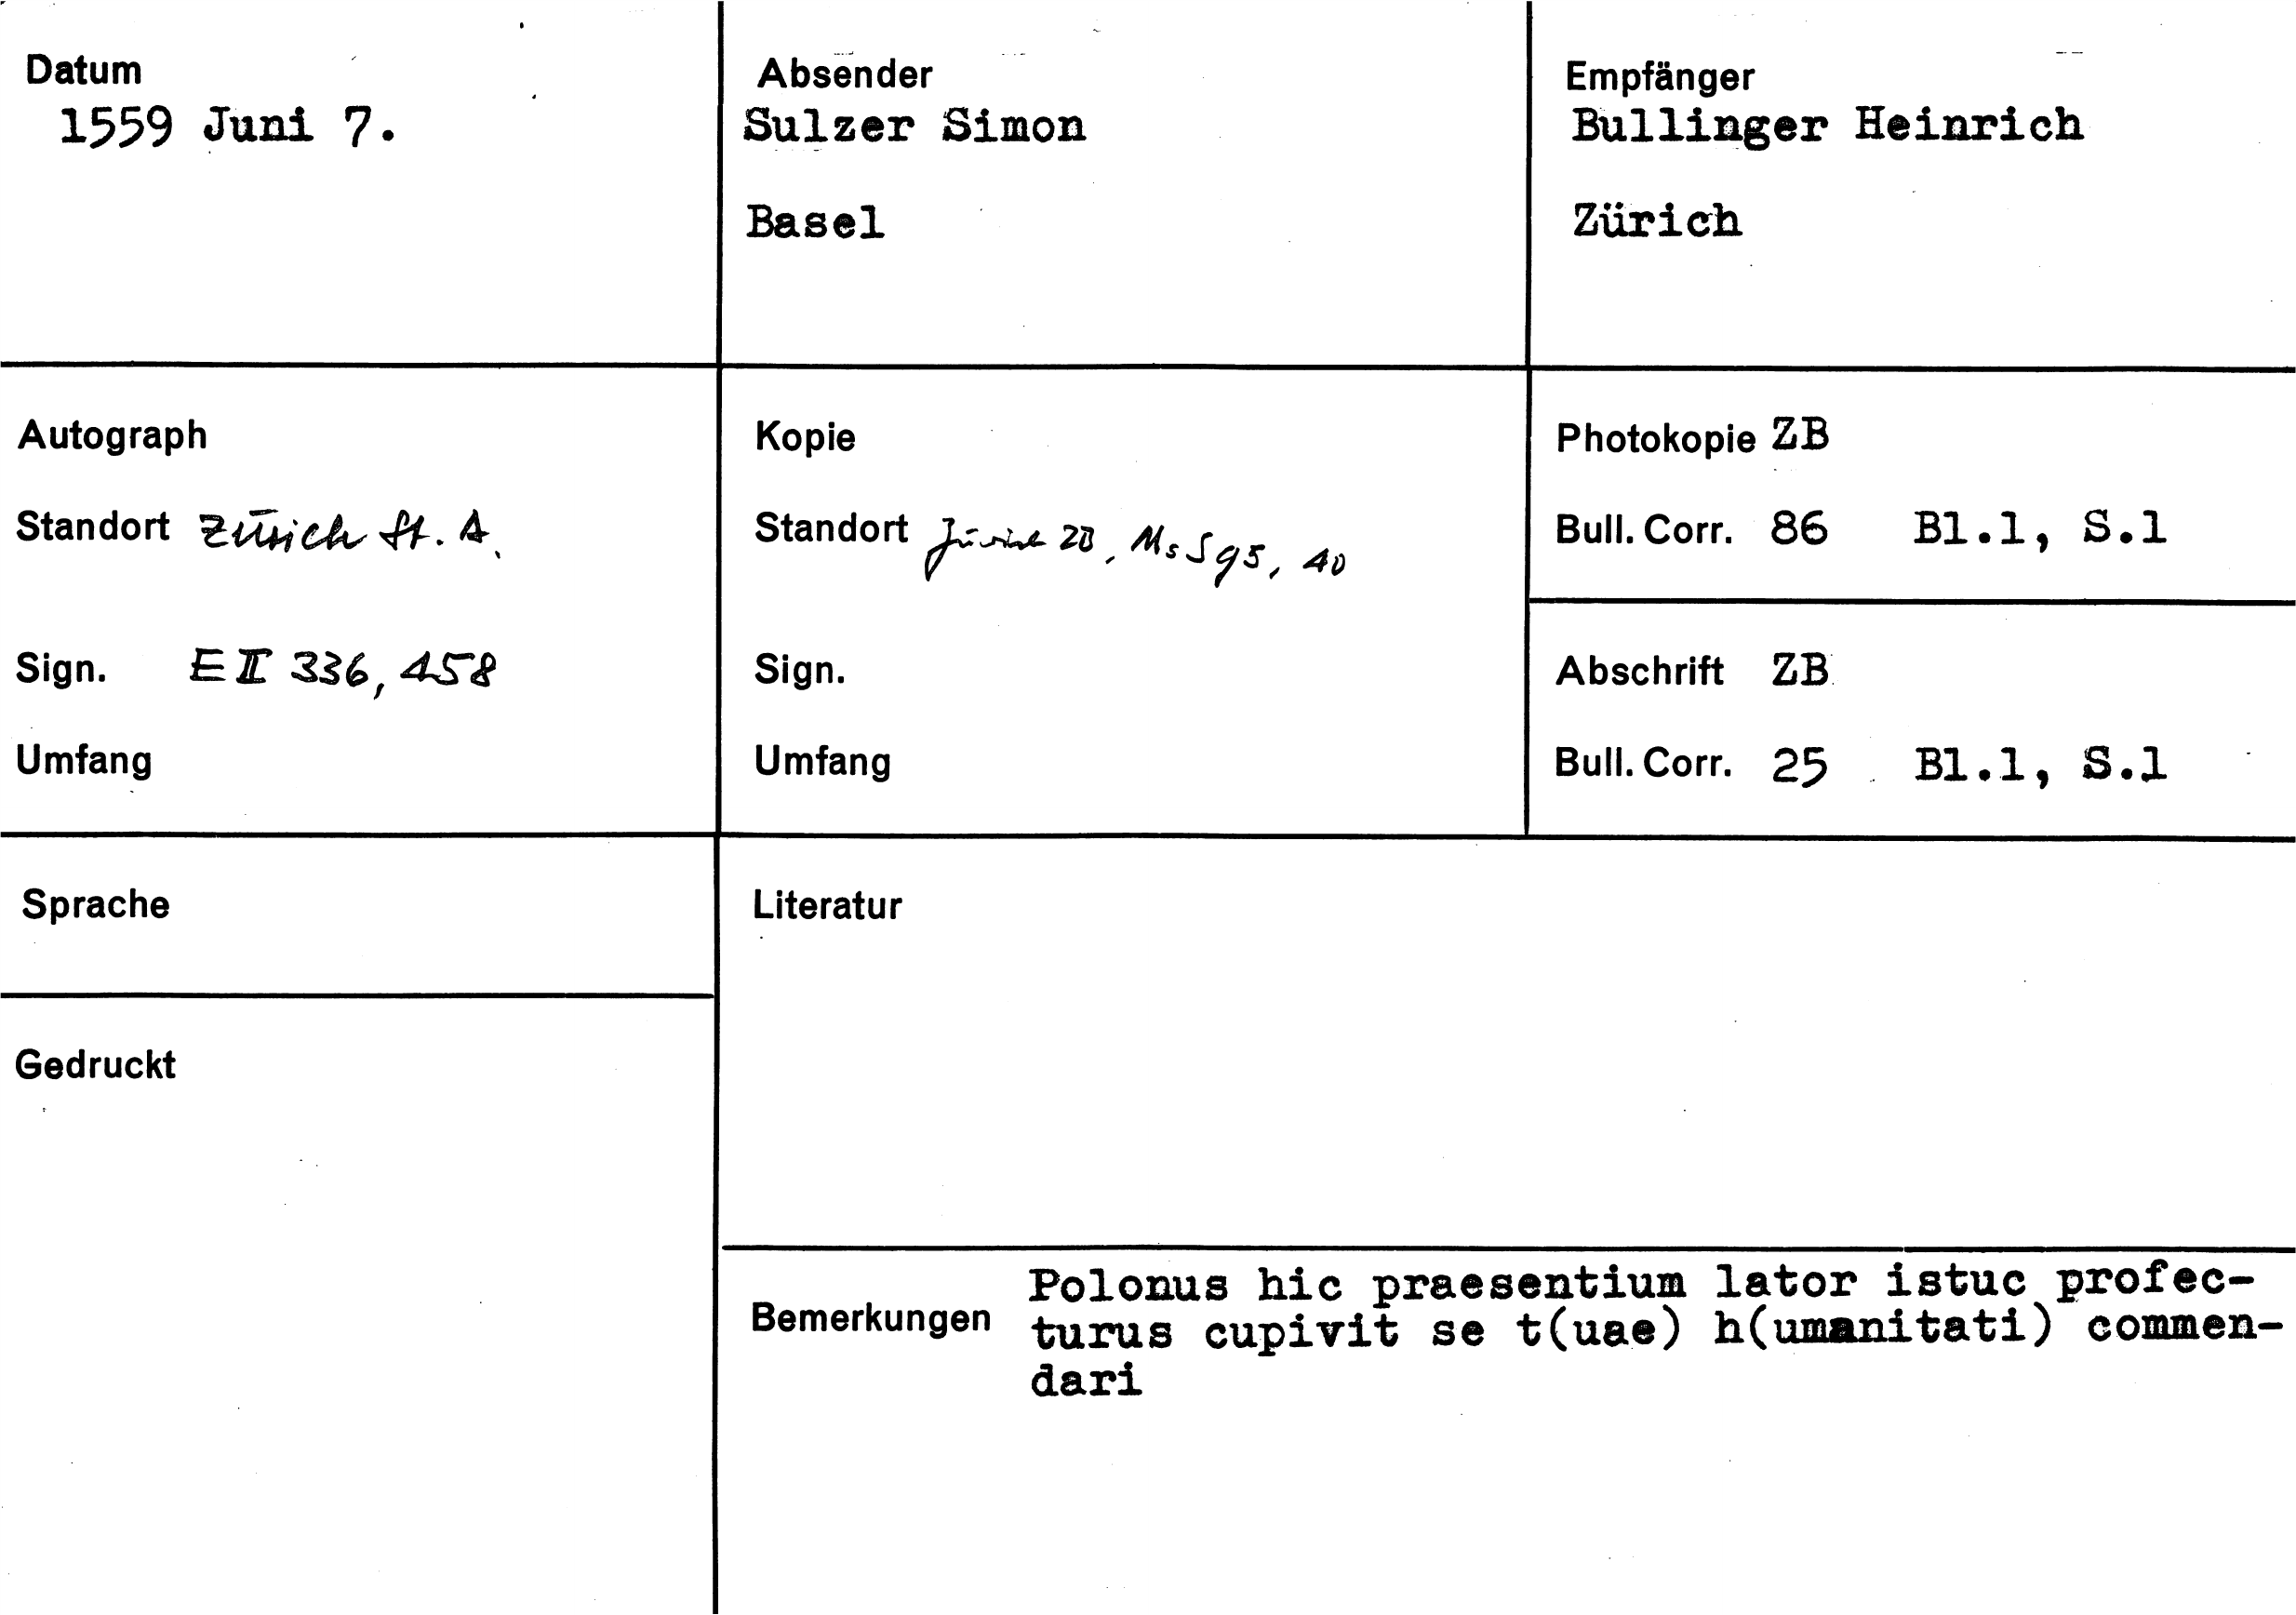 Datum
1559 Juni 7.
Absender
Sulzer Simon
Basel
Empfänger
Bullinger Heinrich
Zürich
Autograph
Standort Zürich St. A.
Sign. E II 336, 458
Umfang
Kopie
Standort Zürich ZB, Ms S 95, 40
Sign.
Umfang
Photokopie ZB
Bull. Corr. 86 Bl.1, S.1
Abschrift ZB
Bull. Corr. 25 Bl.1, S.1
Sprache
Gedruckt
Literatur
Bemerkungen
Polonus hic praesentium lator istuc profec-
turus cupivit se t(uae) h(umanitati) commen-
dari